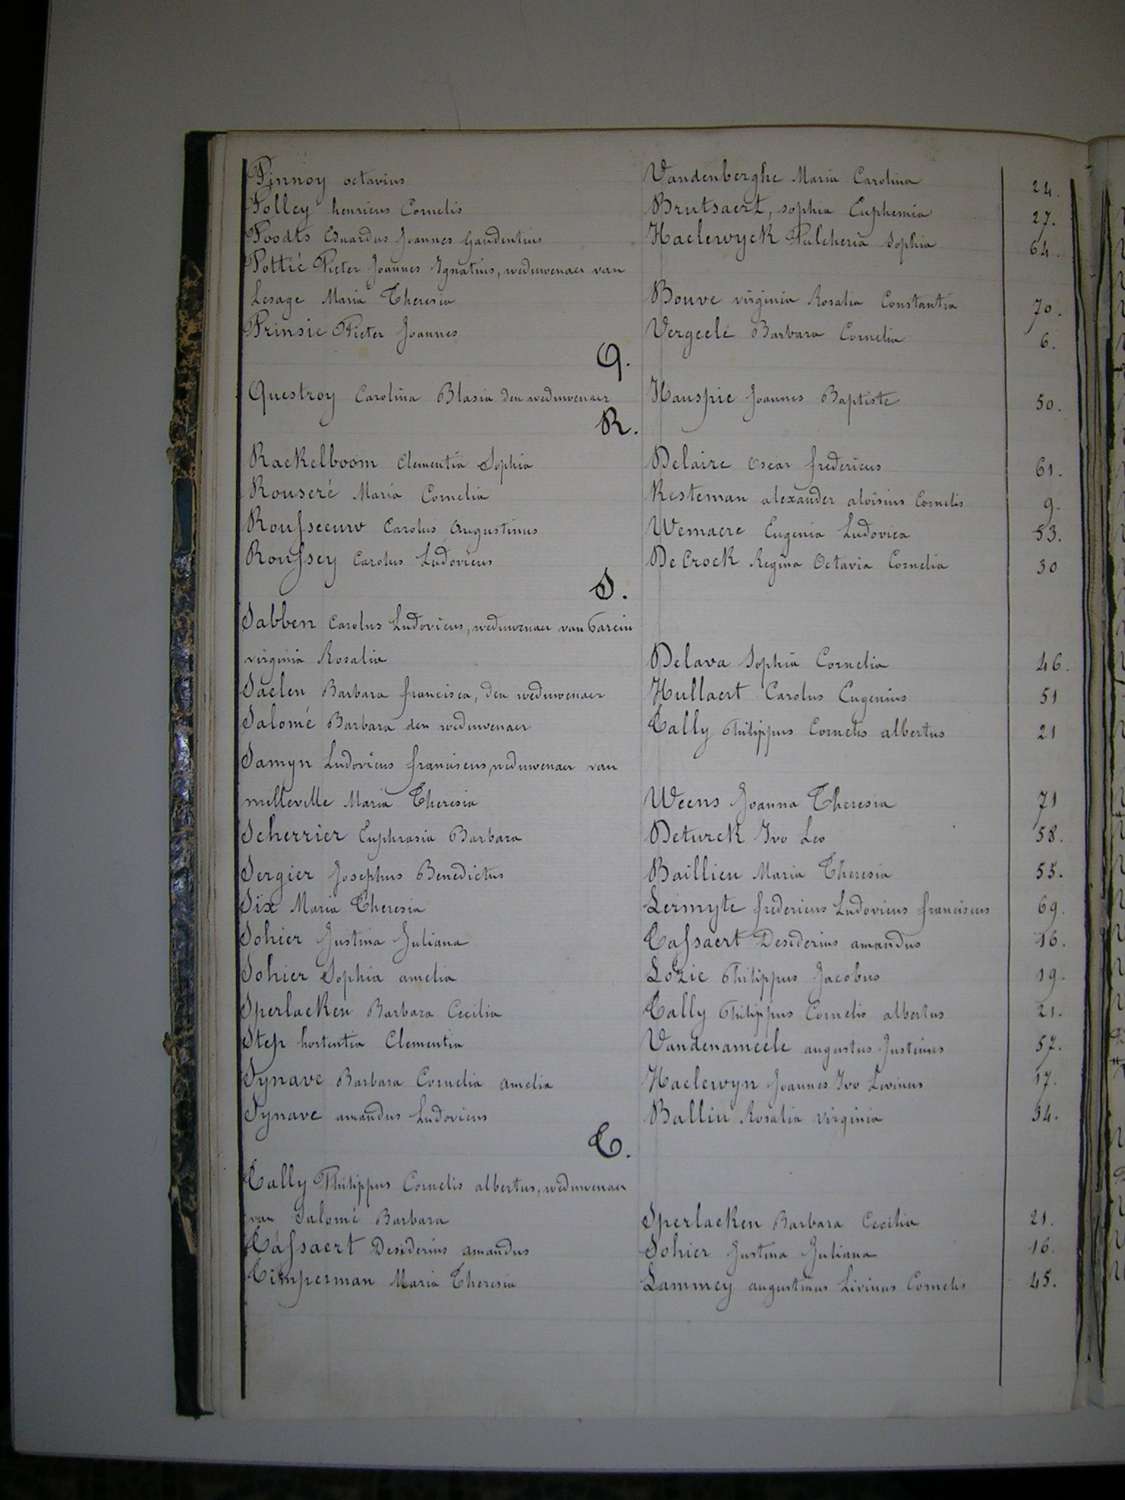 Pinnoy octavius Vandenberghe Maria Carolina 24.
Polley henricus Cornelis Brutsaert, sophia Euphemia 27.
Poodts Eduardus Joannes Gaudentius Haelewyck Pulcheria Sophia 64.
Pottié Pieter Joannes Ignatius, weduwenaer van
Lesage Maria Theresia Bouve virginia Rosalia Constantia 70.
Prinsie Pieter Joannes Vergeele Barbara Cornelia 6.
Q.
Questroy Carolina Blasia den weduwenaer Hauspie Joannes Baptiste 50.
R.
Raekelboom Clementia Sophia Delaire Oscar fredericus 61.
Rouseré Maria Cornelia Resteman alexander aloïsius Cornelis 9.
Rousseeuw Carolus Augustinus Wemaere Eugenia Ludovica 53.
Roussey Carolus Ludovicus DeCrock Regina Octavia Cornelia 30
S.
Sabben Carolus Ludovicus, weduwenaer van Garein
virginia Rosalia Delava Sophia Cornelia 46.
Saelen Barbara francisca, den weduwenaer Hullaert Carolus Eugenius 51
Salomé Barbara den weduwenaer Tally Philippus Cornelis albertus 21
Samyn Ludovicus franciscus, weduwenaer van
melleville Maria Theresia Weens Joanna Theresia 71
Scherrier Euphrasia Barbara Deturck Ivo Leo 58.
Sergier Josephus Benedictus Baillieu Maria Theresia 55.
Six Maria Theresia Lermyte fredericus Ludovicus franciscus 69.
Sohier Justina Juliana Tassaert Desiderius amandus 16.
Sohier Sophia amelia Lozie Philippus Jacobus 19.
Sperlaeken Barbara Cecilia Tally Philippus Cornelis albertus 21.
Step hortentia Clementia Vandenameele augustus Justinus 57.
Synave Barbara Cornelia amelia Haelewyn Joannes Ivo Livinus 17.
Synave amandus Ludovicus Balliu Rosalia virginia 34.
T.
Tally Philippus Cornelis albertus, weduwenaer
van Salomé Barbara Sperlaeken Barbara Cecilia 21.
Tassaert Desiderius amandus Sohier Justina Juliana 16.
Timperman Maria Theresia Lammey augustinus Livinus Cornelis 45.